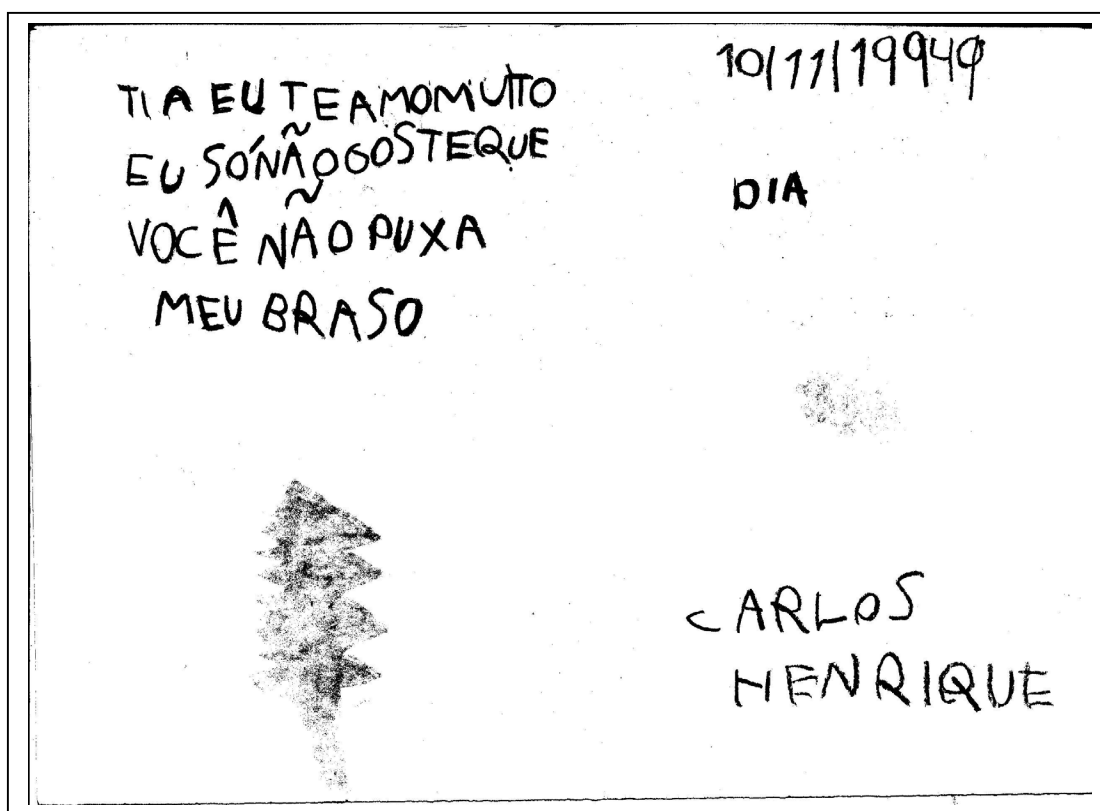 TIA EU TE AMO MUITO
EU SÓ NÃO GOSTEQUE
VOCÊ NÃO PUXA
MEU BRASO
10/11/19949
DIA
CARLOS
HENRIQUE